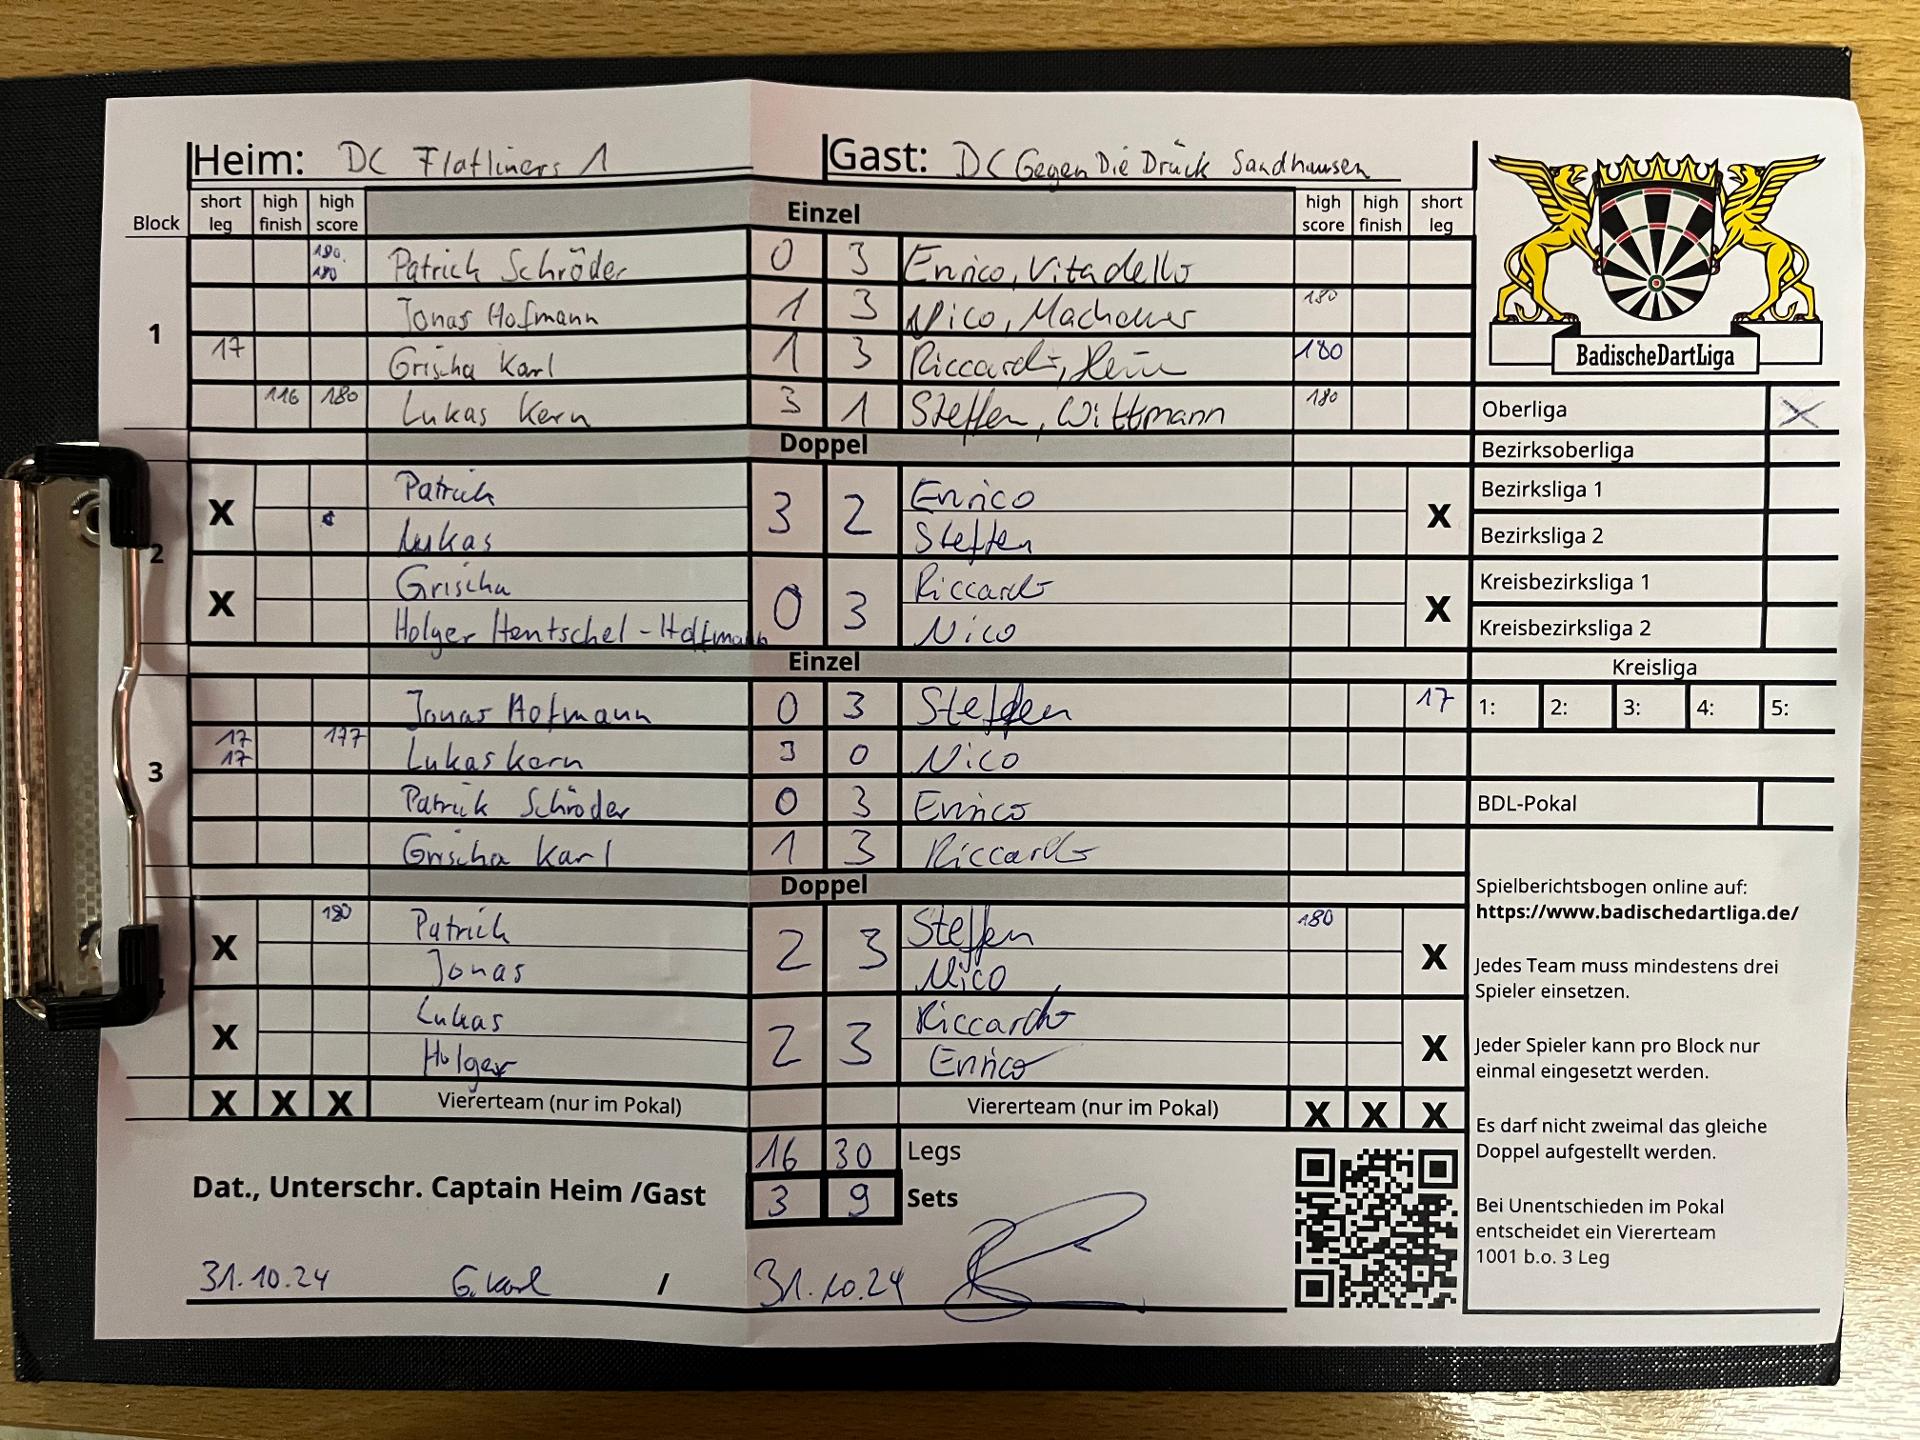 Heim: DC Flatliners 1 Gast: DC Gegen Die Drück Sandhausen
Block short leg high finish high score Einzel high score high finish short leg
1
180, 180 Patrick Schröder 0 3 Enrico, Vitadello
Jonas Hofmann 1 3 Nico, Machauer 180
17 Grischa Karl 1 3 Riccardo, 180
116 180 Lukas Kern 3 1 Steffen, Wittmann 180
Doppel
2
X Patrick 3 2 Enrico X
Lukas Steffen
X Grischa 0 3 Riccardo X
Holger Hentschel-Hoffmann Nico
Einzel
3
Jonas Hofmann 0 3 Steffen 17
17 17 177 Lukas Kern 3 0 Nico
Patrick Schröder 0 3 Enrico
Grischa Karl 1 3 Riccardo
Doppel
X 180 Patrick 2 3 Steffen 180 X
Jonas Nico
X Lukas 2 3 Riccardo X
Holger Enrico
X X X Viererteam (nur im Pokal) Viererteam (nur im Pokal) X X X
16 30 Legs
3 9 Sets
Dat., Unterschr. Captain Heim /Gast
31.10.24 G. Karl / 31.10.24
BadischeDartLiga
Oberliga X
Bezirksoberliga
Bezirksliga 1
Bezirksliga 2
Kreisbezirksliga 1
Kreisbezirksliga 2
Kreisliga
1: 2: 3: 4: 5:
BDL-Pokal
Spielberichtsbogen online auf:
https://www.badischedartliga.de/
Jedes Team muss mindestens drei
Spieler einsetzen.
Jeder Spieler kann pro Block nur
einmal eingesetzt werden.
Es darf nicht zweimal das gleiche
Doppel aufgestellt werden.
Bei Unentschieden im Pokal
entscheidet ein Viererteam
1001 b.o. 3 Leg